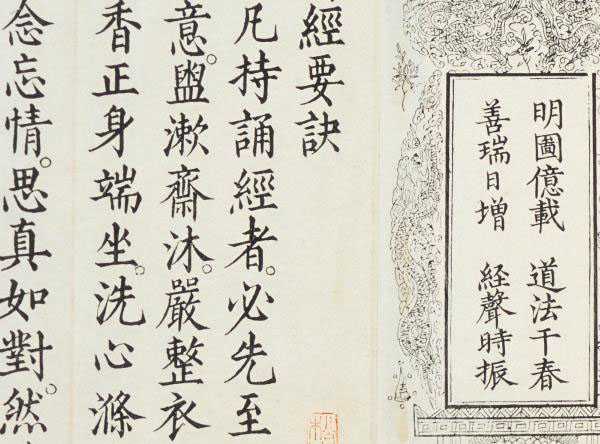 明圖億載 道法千春
善瑞日增 経聲時振
經要訣
凡持誦經者。必先至
意。盥漱齋沐。嚴整衣
香正身端坐。洗心滌
念忘情。思真如對。然